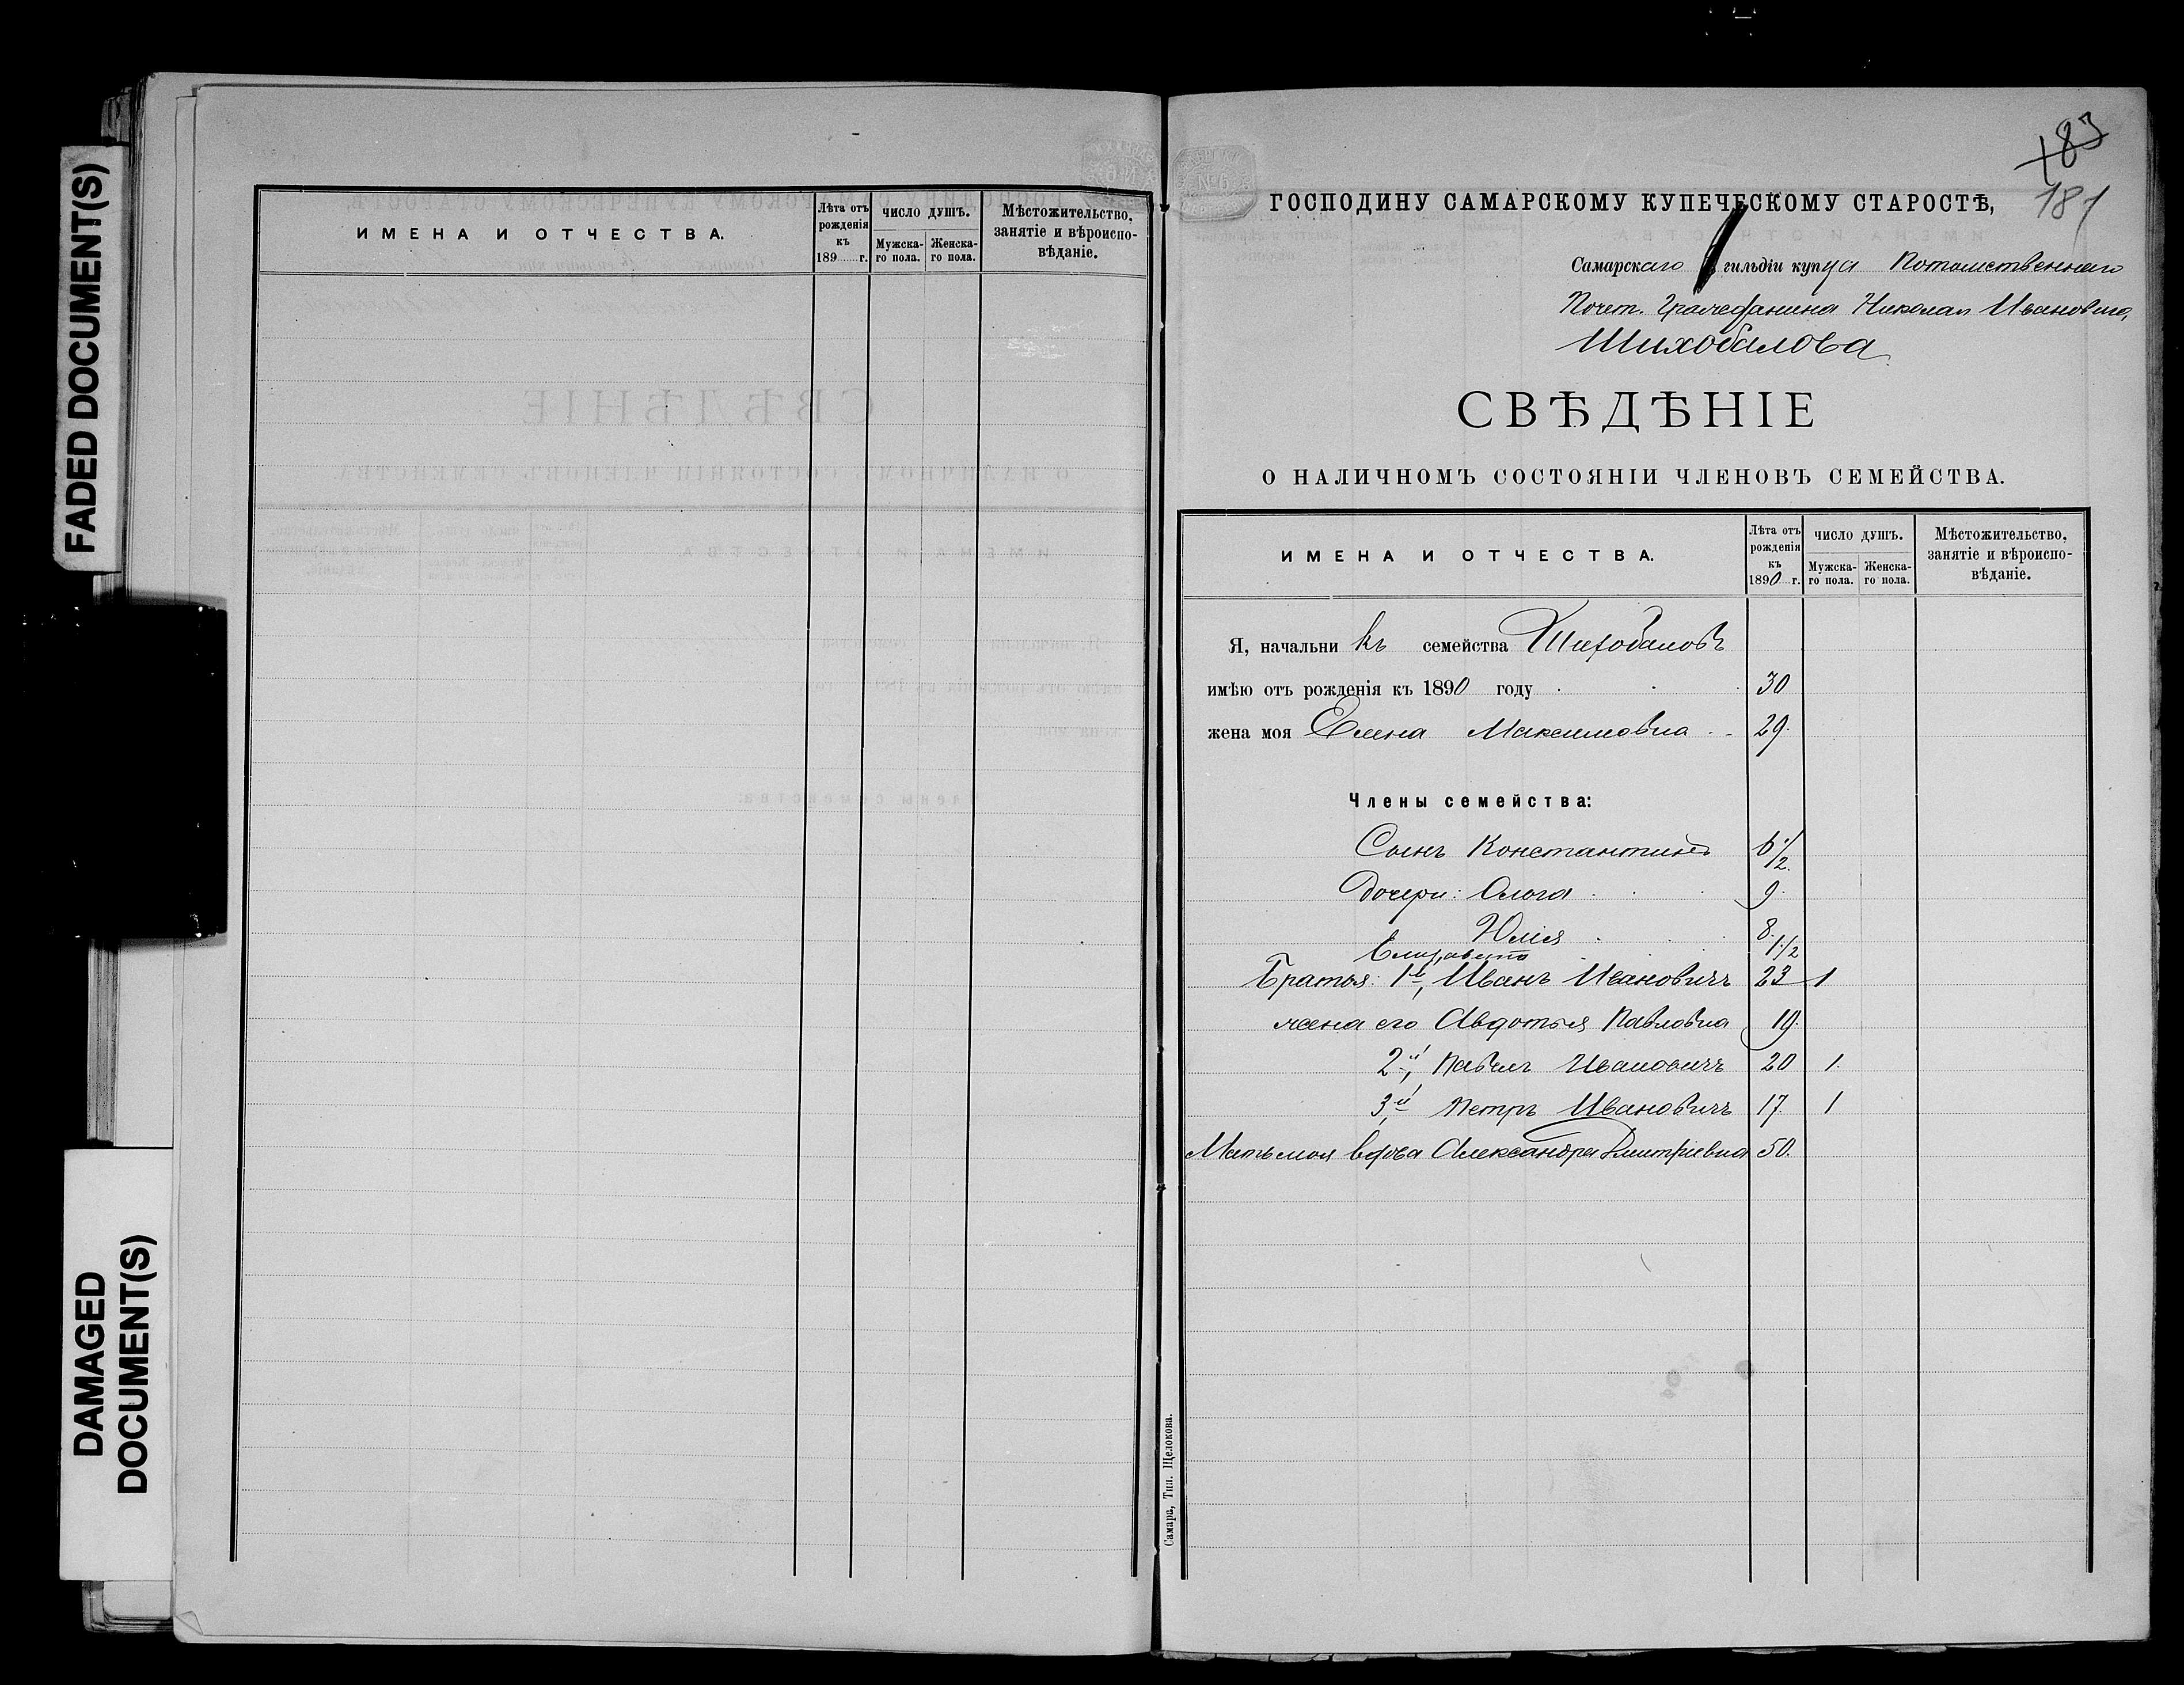 FADED DOCUMENT(S)
DAMAGED
DOCUMENT(S)
ИМЕНА И ОТЧЕСТВА.
Лѣта отъ
рожденія
къ
189 г.
ЧИСЛО ДУШЪ.
Мужска-
го пола.
Женска-
го пола.
Мѣстожительство,
занятіе и вѣроиспо-
вѣданіе.
183
181
ГОСПОДИНУ САМАРСКОМУ КУПЕЧЕСКОМУ СТАРОСТѢ,
Самарскаго гильдіи купца Потомственнаго
Почет. Гражданина Николая Ивановича
Шихобалова
СВѢДѢНІЕ
О НАЛИЧНОМЪ СОСТОЯНІИ ЧЛЕНОВЪ СЕМЕЙСТВА.
ИМЕНА И ОТЧЕСТВА.
Лѣта отъ
рожденія
къ
1890 г.
ЧИСЛО ДУШЪ.
Мужска-
го пола.
Женска-
го пола.
Мѣстожительство,
занятіе и вѣроиспо-
вѣданіе.
Я, начальникъ семейства Шихобаловъ
имѣю отъ рожденія къ 1890 году 30
жена моя Елена Максимовна 29.
Члены семейства:
Сынъ Константинъ 6 1/2.
Дочери: Ольга 9.
Юлія 8.
Елизавета 1 1/2
Братья: 1й, Иванъ Ивановичъ 23 1
жена его Авдотья Павловна 19.
2й, Павелъ Ивановичъ 20 1.
3й Петръ Ивановичъ 17. 1
Мать моя вдова Александра Дмитріевна 50.
Самара, Тип. Щелокова.